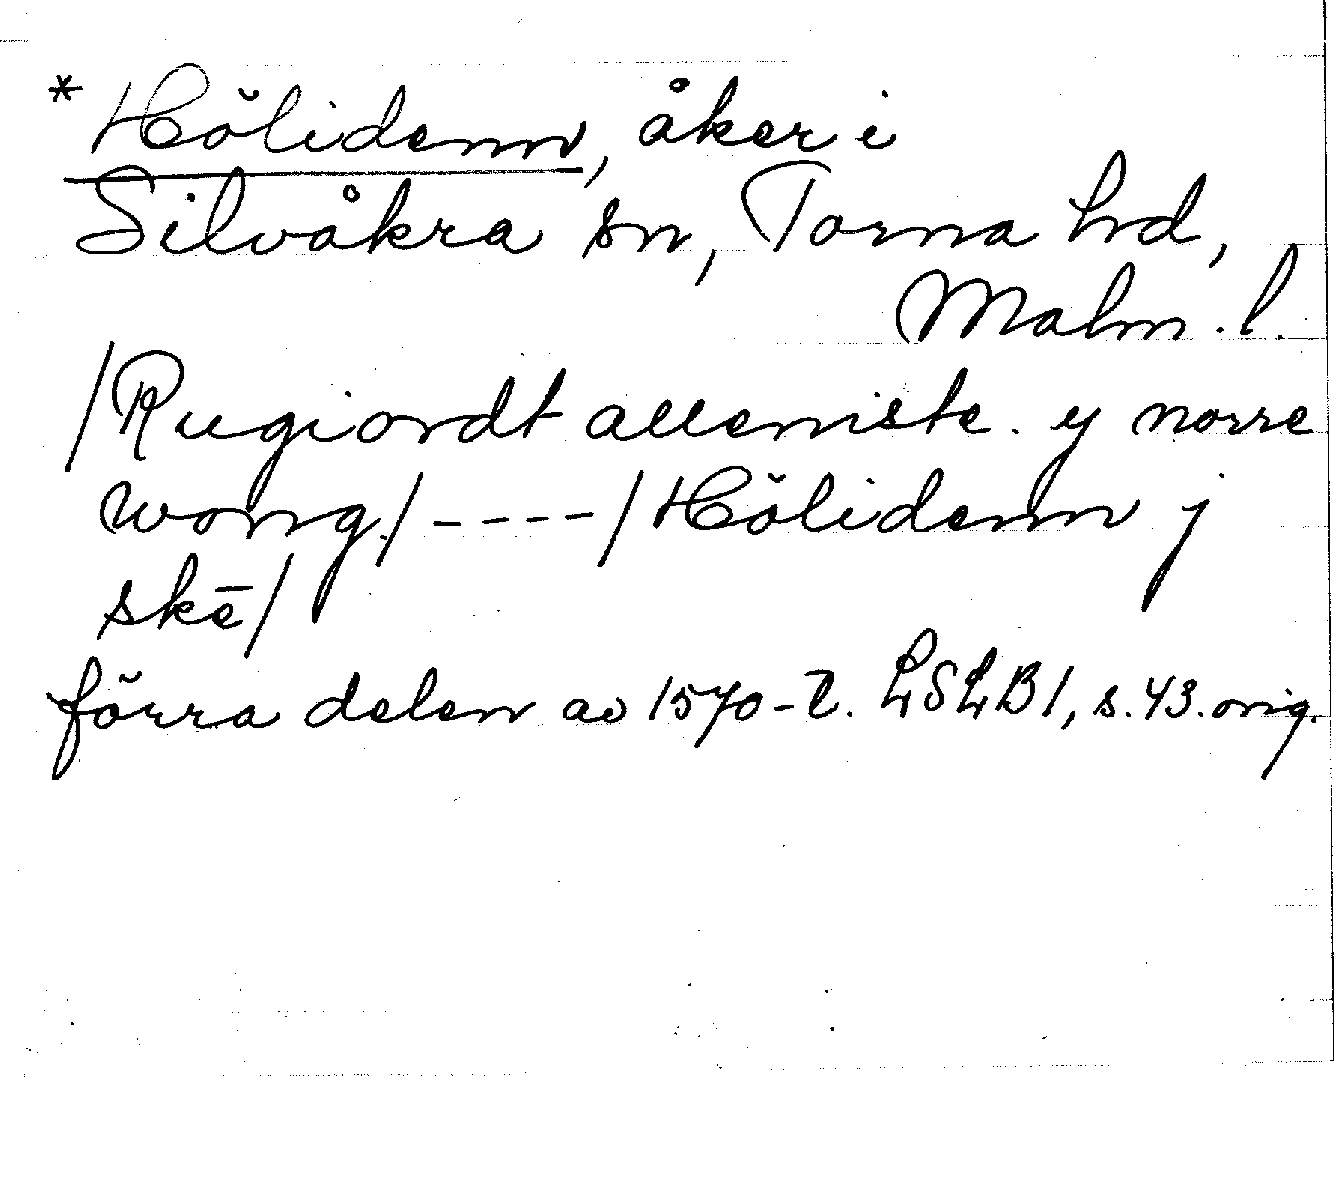 *Hölidenn, åker i
Silvåkra sn, Torna hd,
Malm. l.
/Rugiordt allerniste. y norre
wong/----/Hölidenn j
skē/
förra delen av 1570-t. LSLB1, s.43. orig.